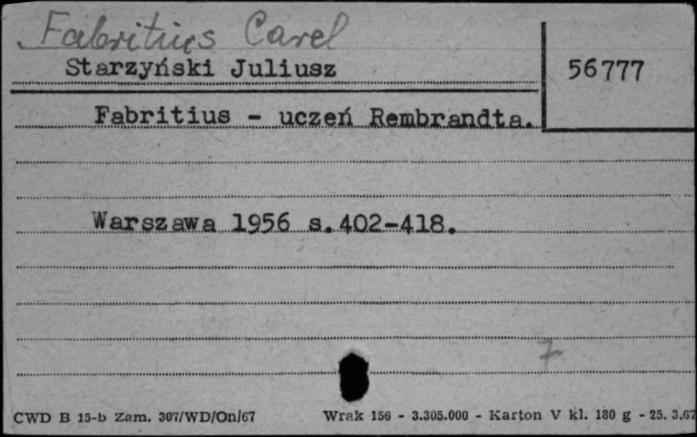 Fabritius Carel
Starzyński Juliusz
56777
Fabritius - uczeń Rembrandta.
Warszawa 1956 s.402-418.
7
CWD B 15-b Zam. 307/WD/On/67 Wrak 156 - 3.305.000 - Karton V kl. 180 g - 25. 3.67